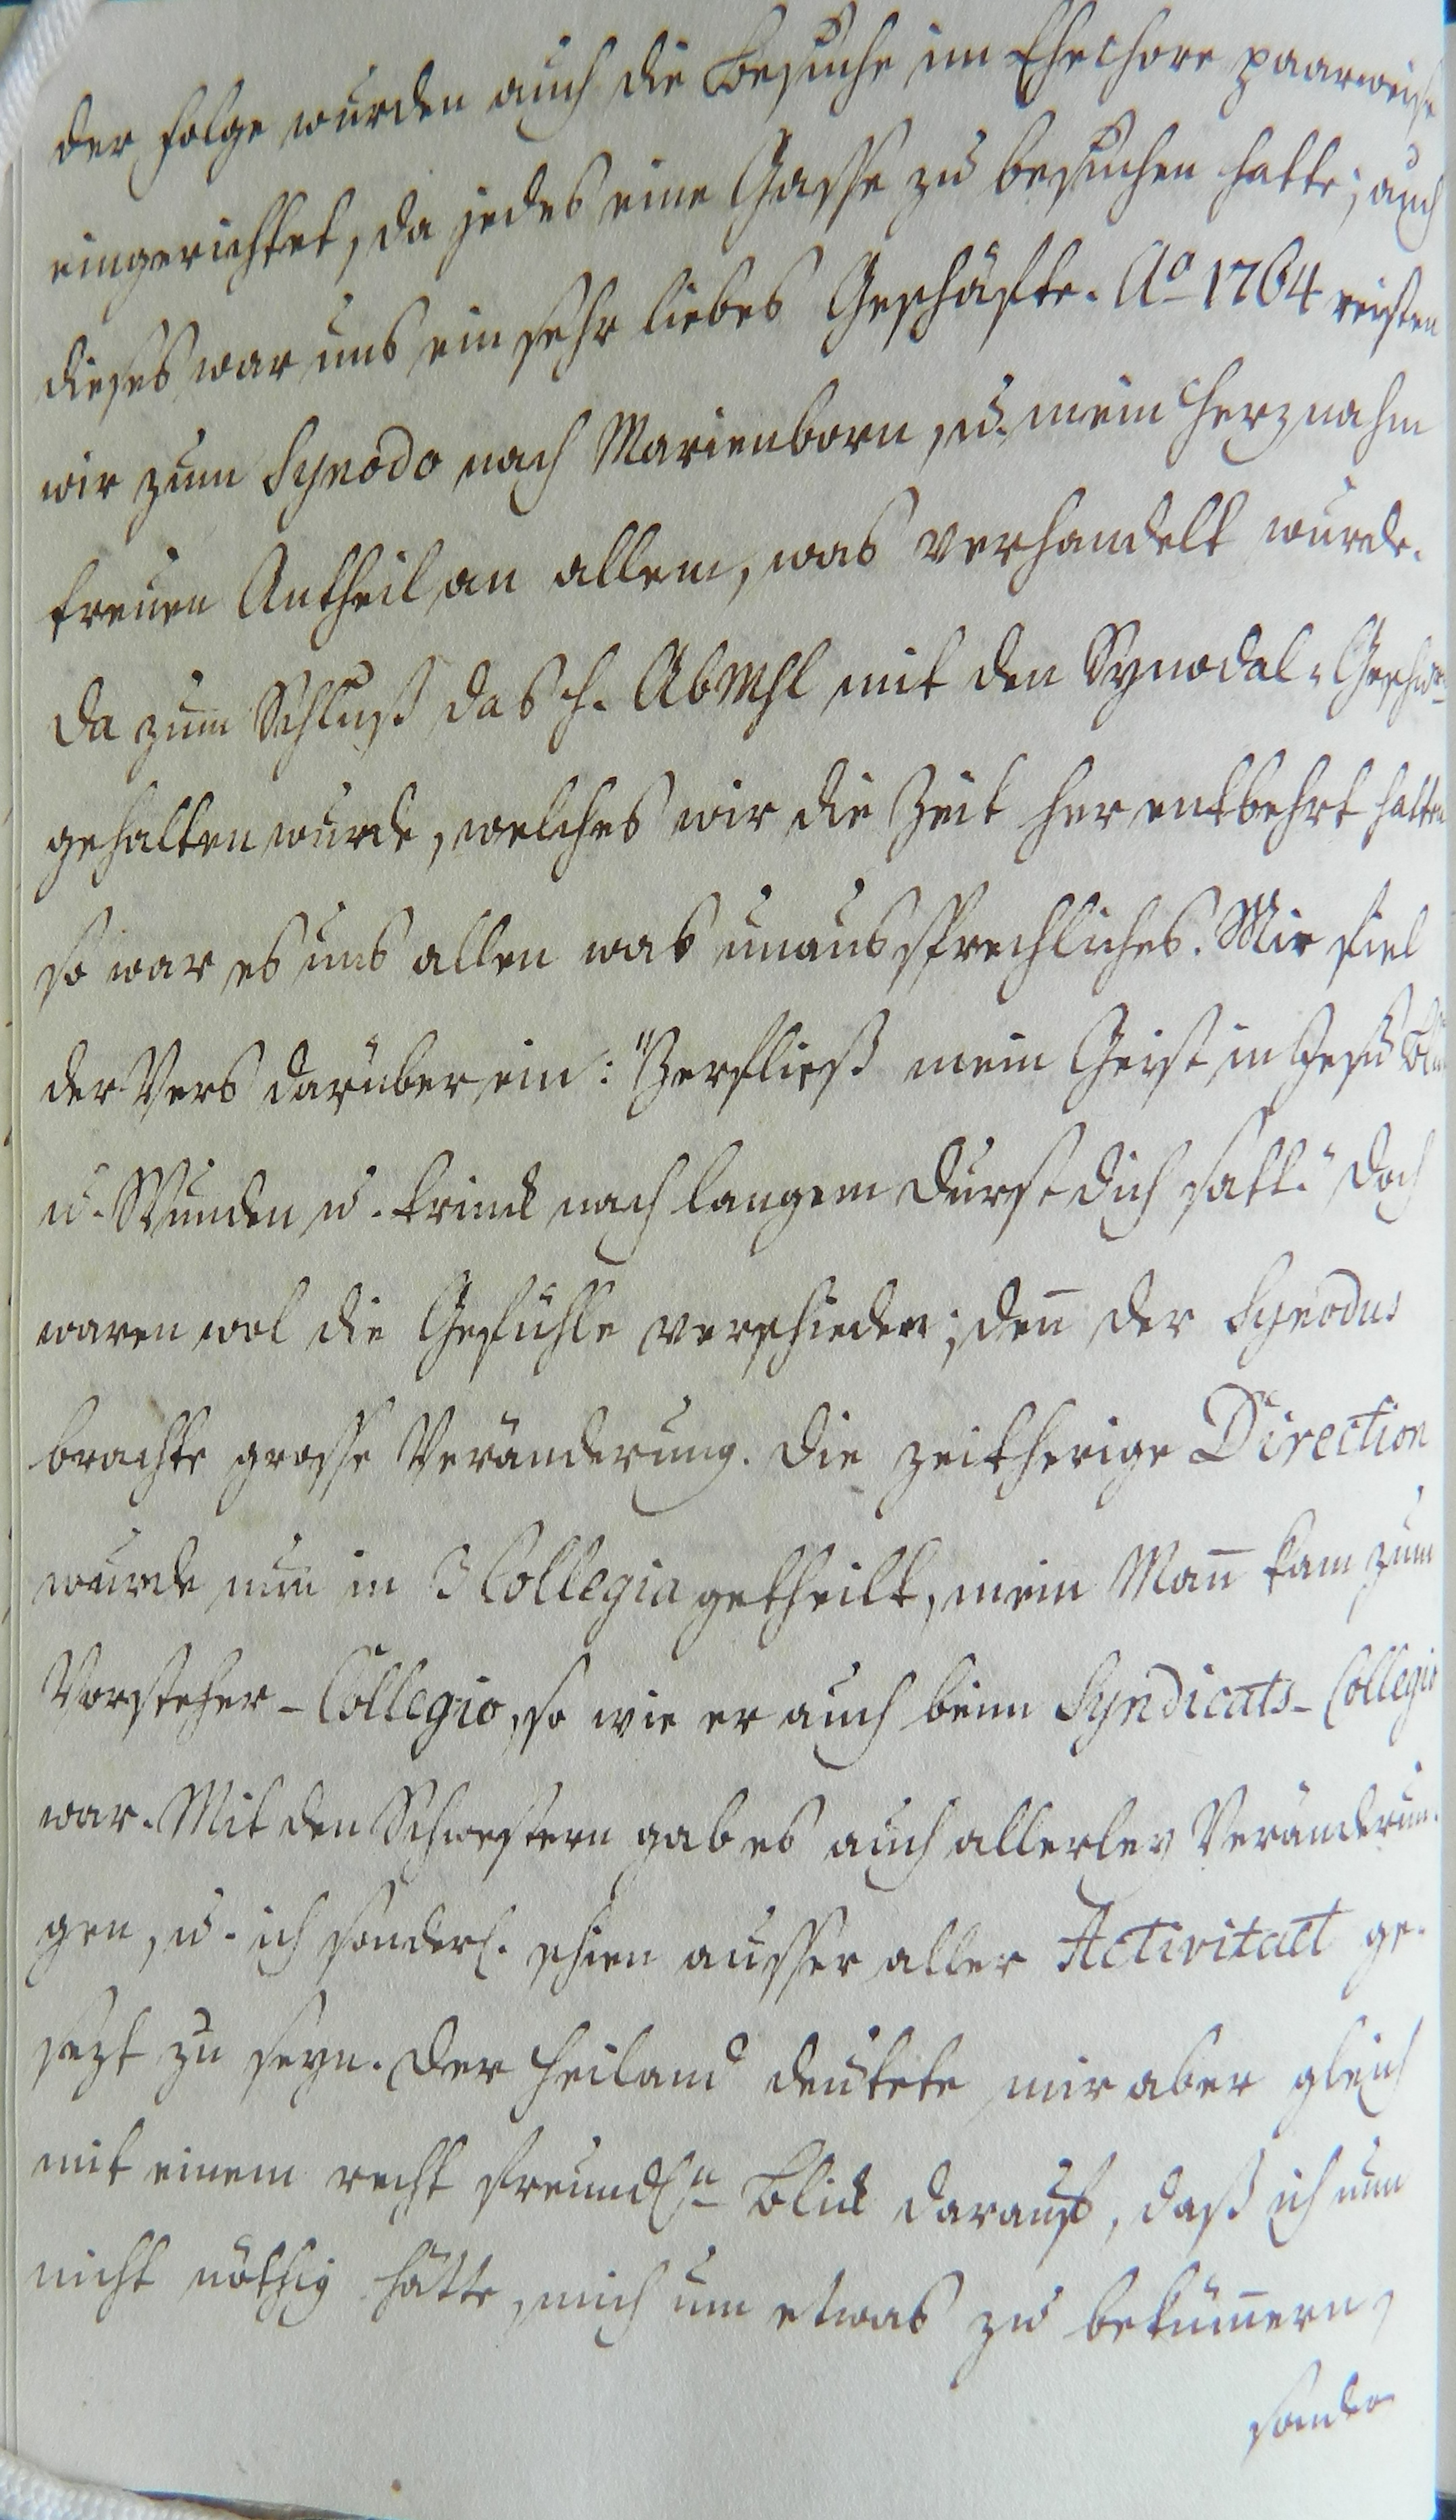 der Folge wurden auch die Besuche im Ehechore paarweise
eingerichtet, da jedes eine Gasse zu besuchen hatte; auch
dieses war uns ein sehr liebes Geschäfte. Ao 1764 reisten
wir zum Synodo nach Marienborn, u. mein Herz nahm
treuen Antheil an allem, was verhandelt wurde.
Da zum Schluß das h. AbMhl mit den Synodal-Geschw.
gehalten wurde, welches wir die Zeit her entbehrt hatten
so war es uns allen was unaussprechliches. Mir fiel
der Vers darüber ein: "Zerfließ mein Geist in Jesu
u. Wunden u. trink nach langem Durst dich satt." Doch
waren wol die Gefühle verschieden; den̄ der Synodus
brachte grosse Veränderung. Die zeitherige Direction
wurde nun in 3 Collegia getheilt, mein Man̄ kam zum
Vorsteher-Collegio, so wie er auch beim Syndicats-Collegio
war. Mit den Schwestern gab es auch allerley Veränderun-
gen, u. ich sonderl. schien ausser aller Activitaet ge-
sezt zu seyn. Der Heiland deutete mir aber gleich
mit einem recht freundln Blick darauf, daß ich nun
nicht nöthig hätte, mich um etwas zu beküm̄ern,
sondern